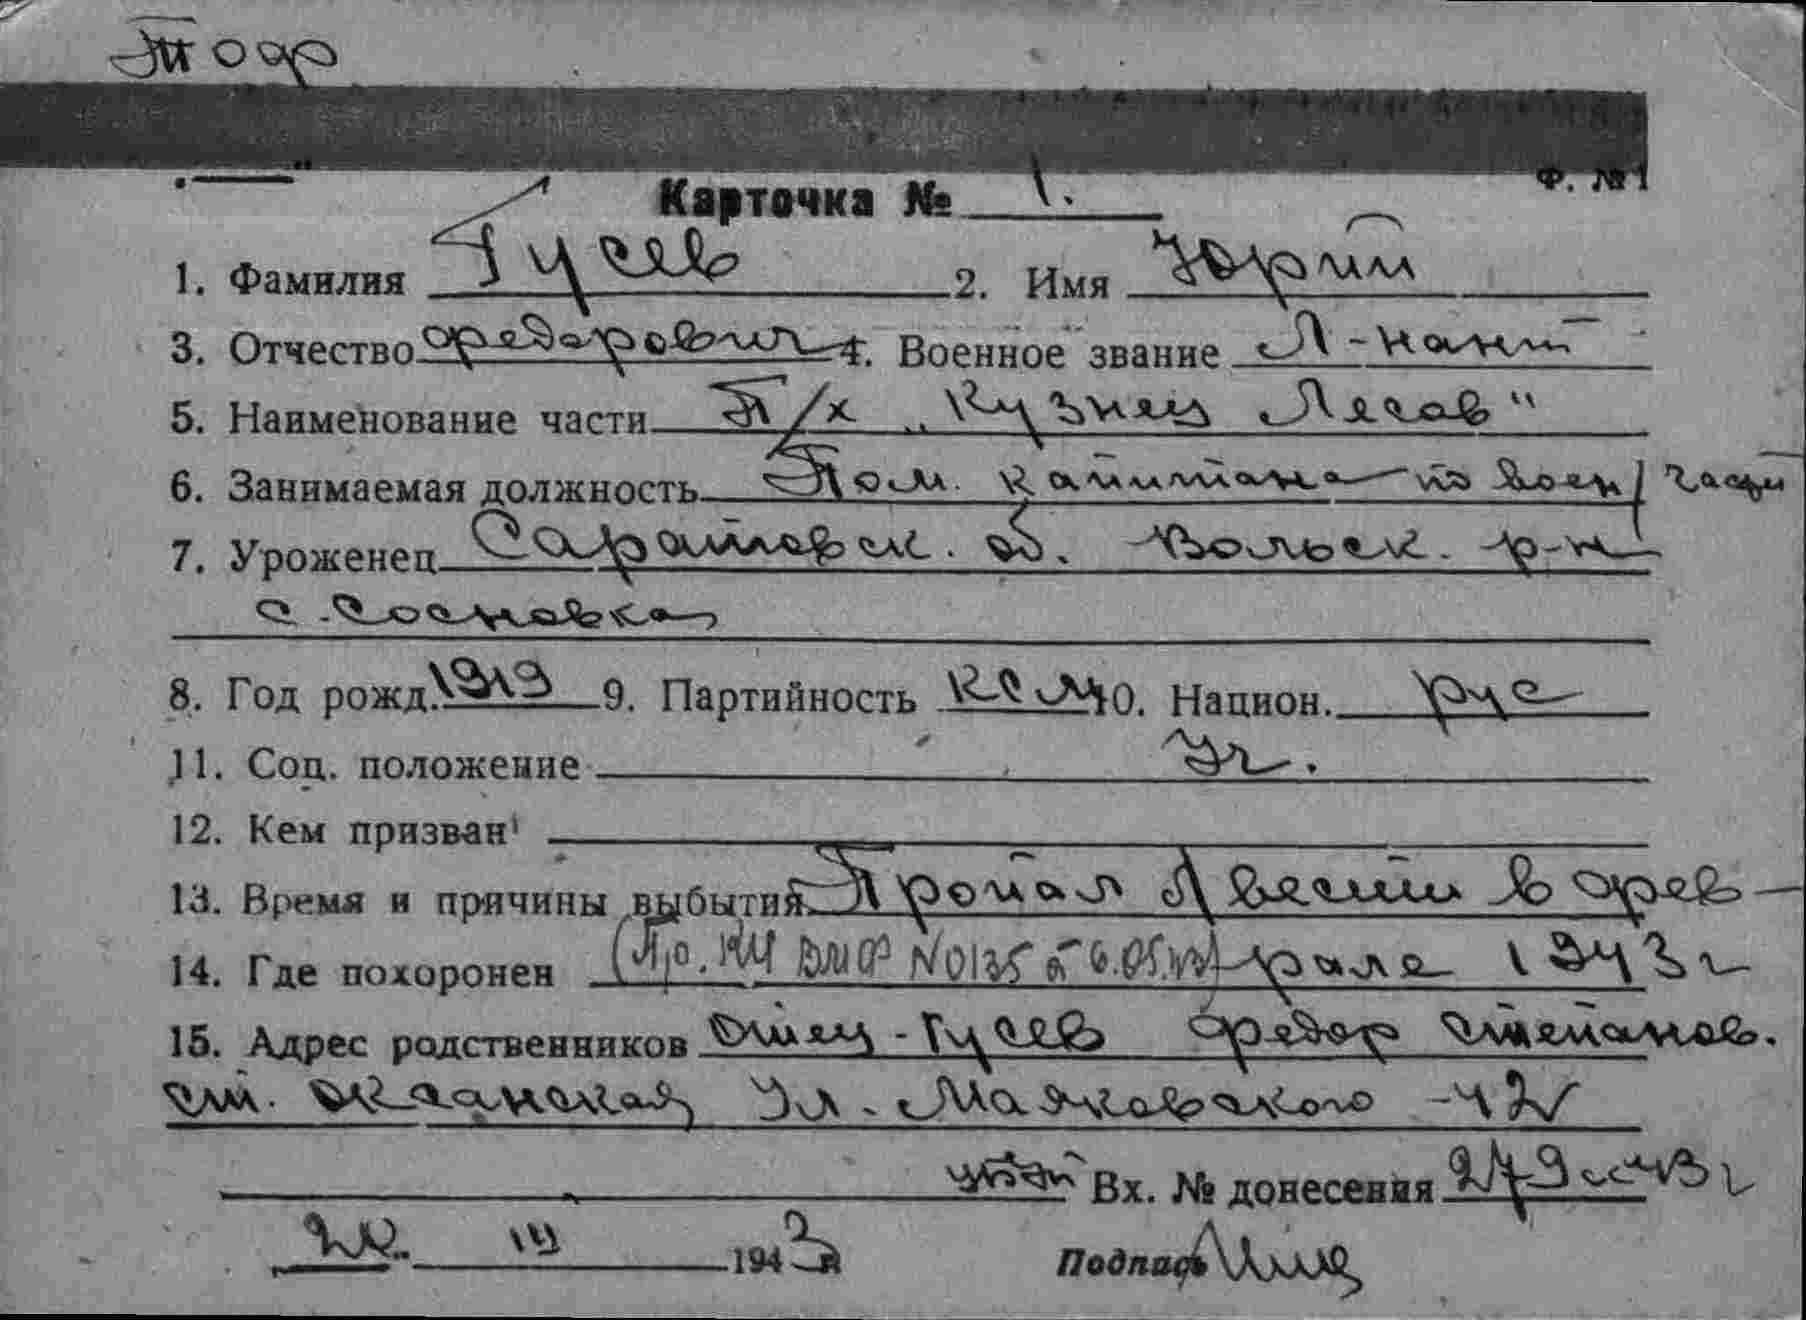 Тоф
Ф. №1
Карточка № 1.
1. Фамилия Гусев 2. Имя Юрий
3. Отчество Федорович 4. Военное звание Л-нант
5. Наименование части П/х „Кузнец Лесов"
6. Занимаемая должность Пом. капитана по воен/части
7. Уроженец Саратовск. об. Вольск. р-н
с. Сосновка
8. Год рожд. 1919 9. Партийность КСМ 10. Национ. рус
11. Соц. положение Уч.
12. Кем призван
13. Время и причины выбытия Пропал б/вести в фев-
14. Где похоронен (Пр. НК ВМФ №0135 от 6.05.43) рале 1943 г
15. Адрес родственников отец - Гусев Федор Степанов.
ст. Океанская ул. Маяковского - 42
Вх. № донесения 279сс 43 г
III 1943 г. Подпись